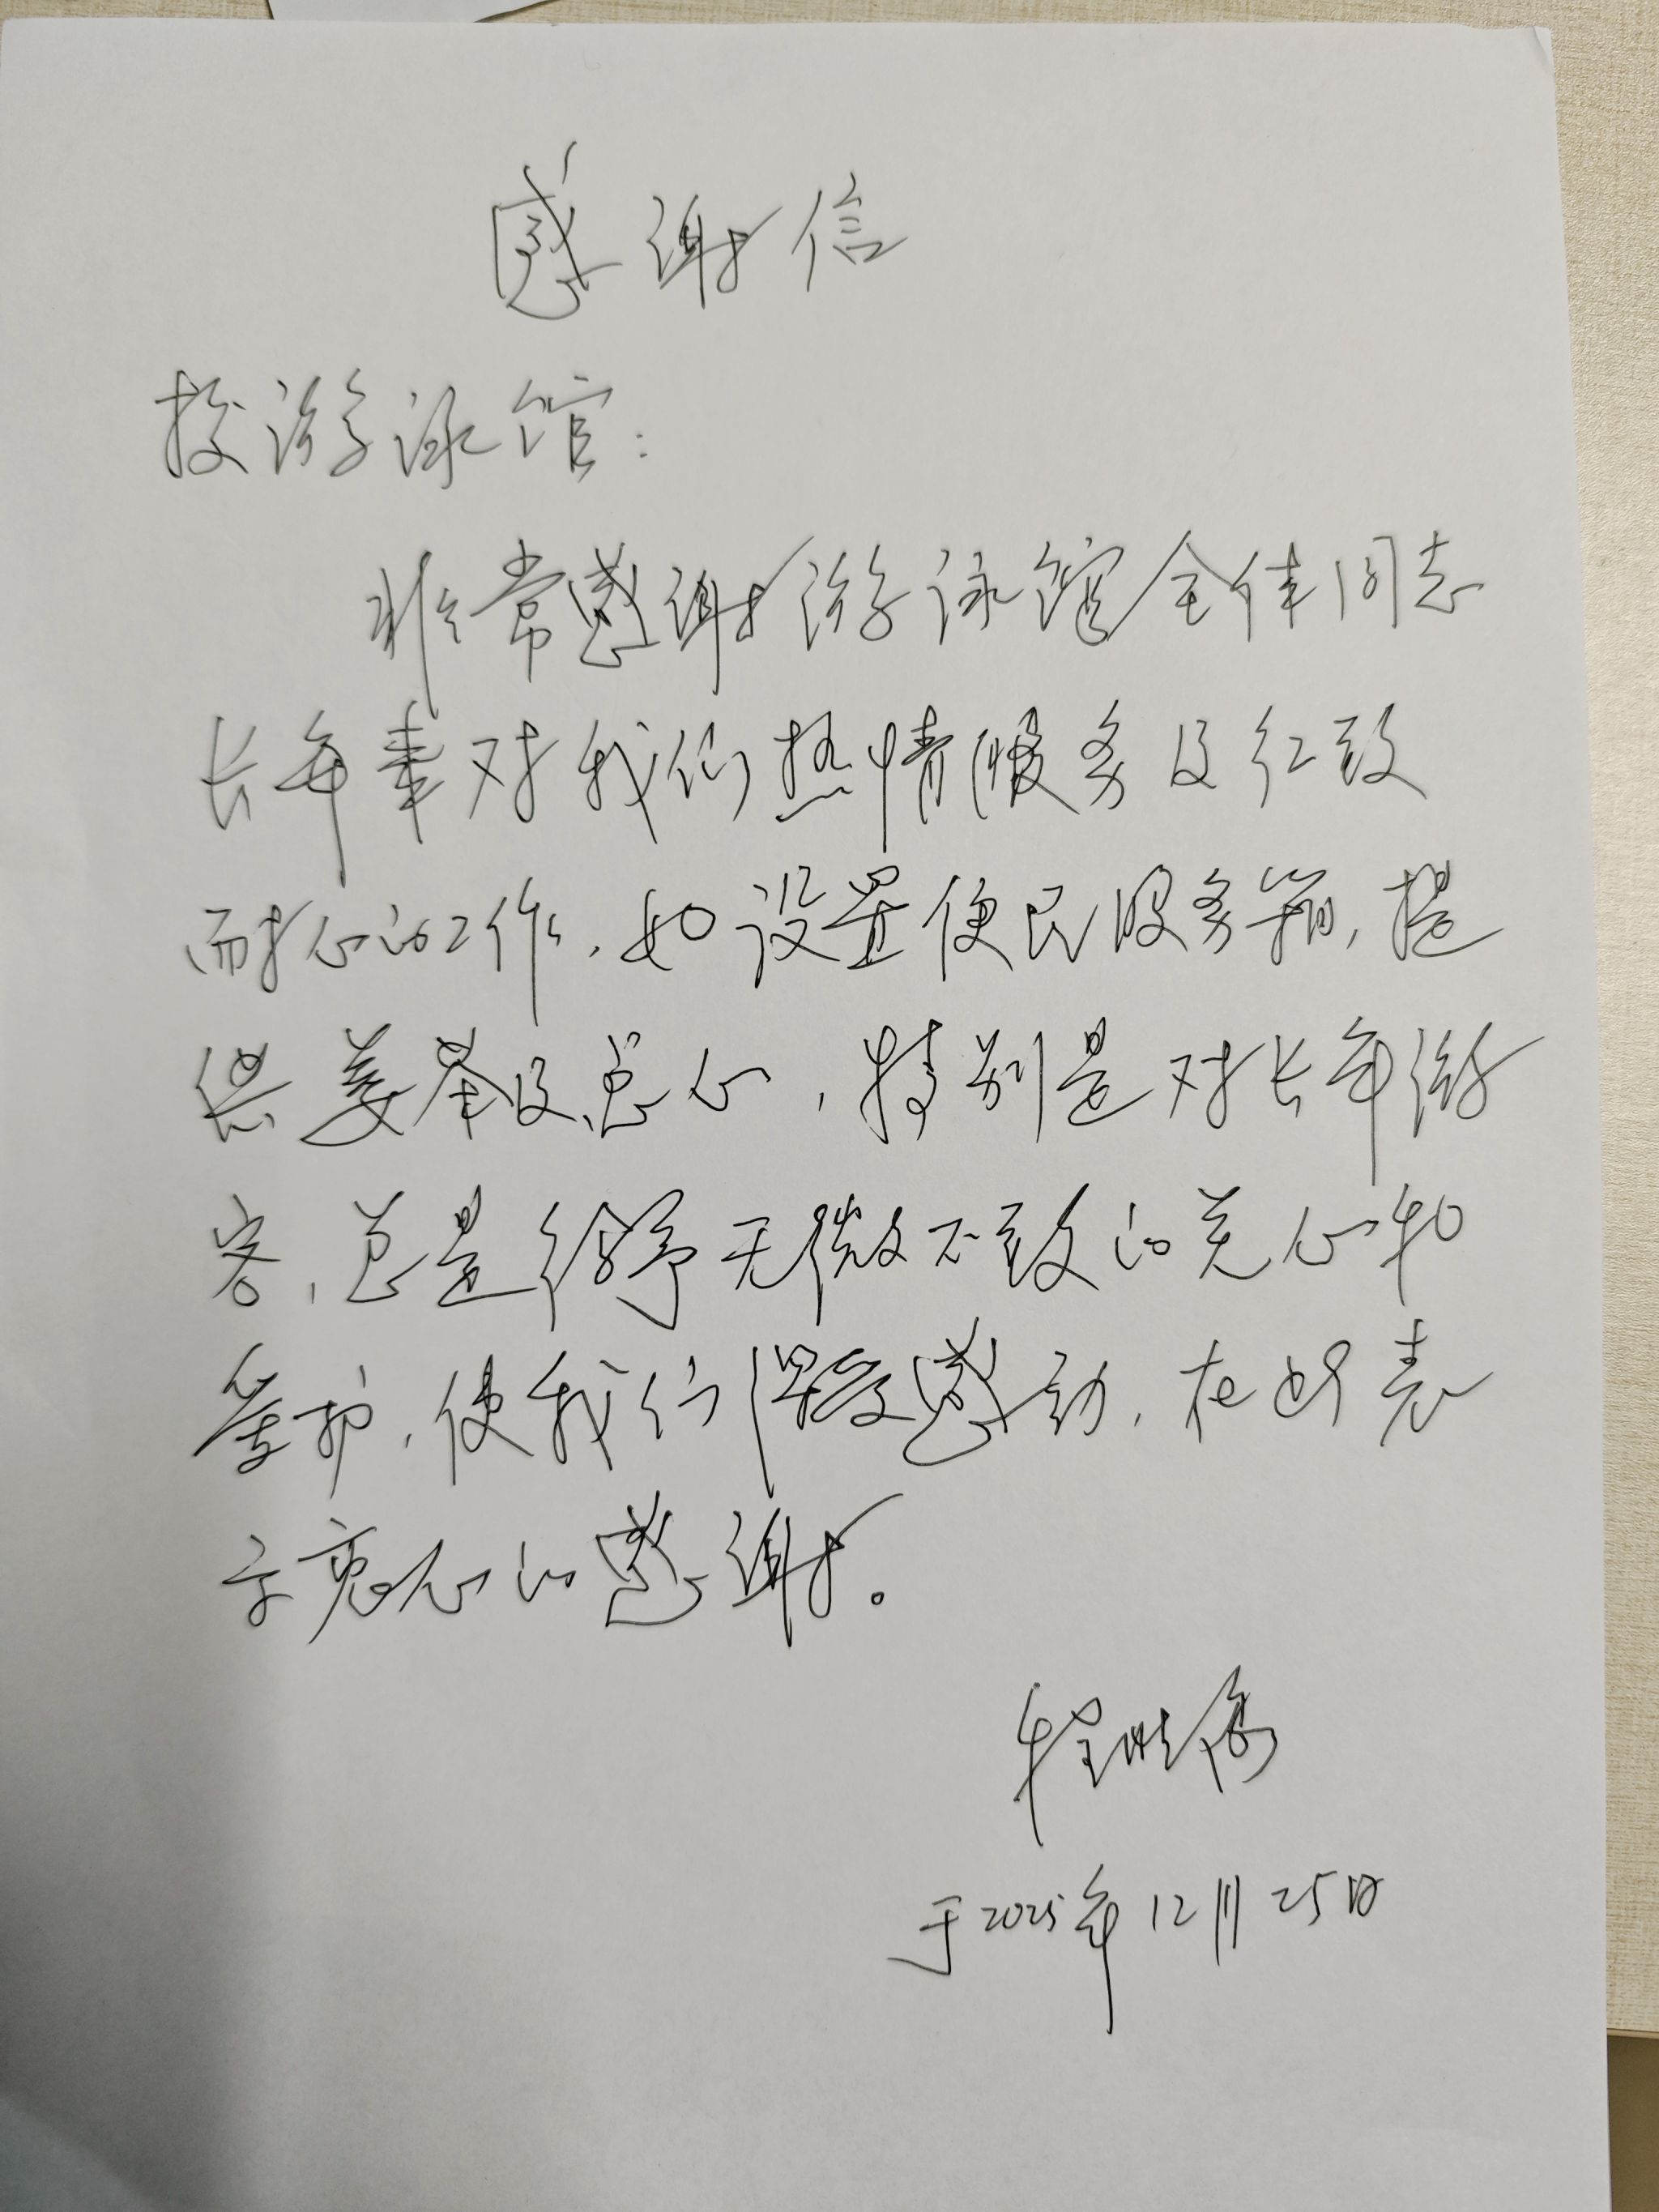 感谢信
校游泳馆:
非常感谢游泳馆全体同志
长年来对我们热情服务及细致
耐心的工作,如设置便民服务箱,提
供姜茶及点心,特别是对长年游
客,总是给予无微不致的关心和
爱护,使我们深受感动,在此表
示衷心的感谢。
程
于2025年12月25日